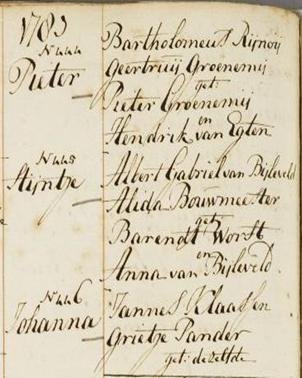 1783
N 444
Pieter
Bartholomeus Rijnvij
Geertruij Groenemij
get:
Pieter Groenemij
en
Hendrik van Egten
N 445
Stijntje
Albert Gabriel van Bijleveld
Alida Bouwmeester
get:
Barendt Worst
en
Anna van Bijleveld
N 446
Johanna
Jannes Klaassen
Grietje Pander
get: dezelfde